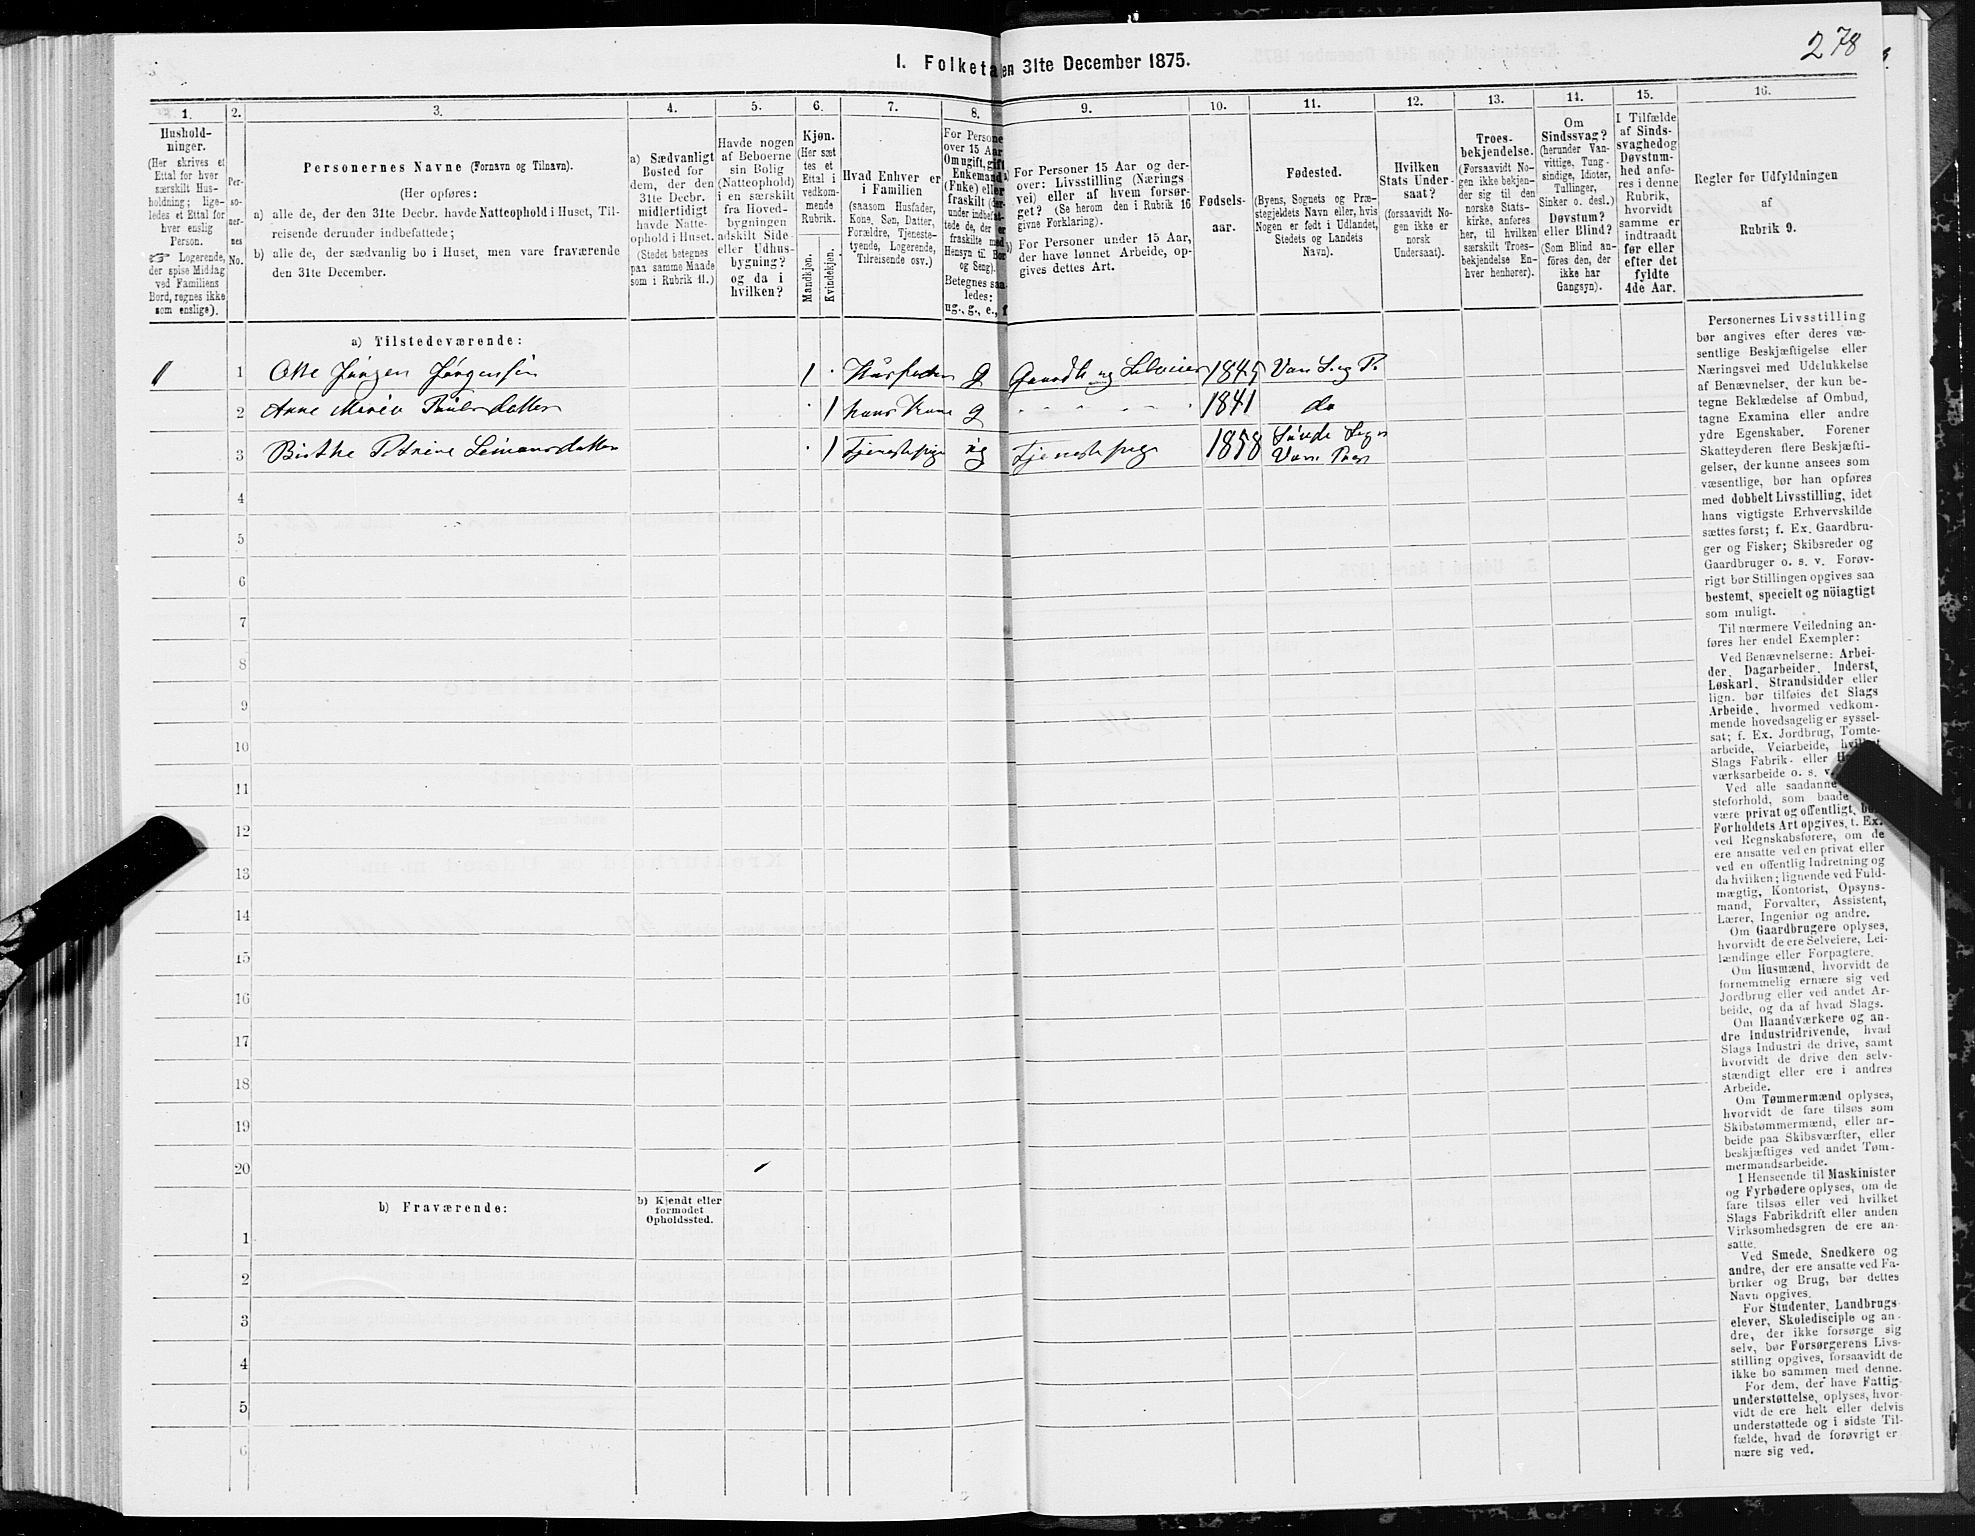 278
I. Folketa en 31te December 1875.
1.
Hushold-
ninger.
(Her skrives et
Ettal for hver
særskilt Hus-
holdning; lige-
ledes et Ettal for
hver enslig
Person.
☞ Logerende,
der spise Middag
ved Familiens
Bord, regnes ikke
som enslige).
2.
Per-
so-
ner-
nes
No.
3.
Personernes Navne (Fornavn og Tilnavn).
(Her opføres:
a) alle de, der den 31te Decbr. havde Natteophold i Huset, Til-
reisende derunder indbefattede;
b) alle de, der sædvanlig bo i Huset, men vare fraværende
den 31te December.
4.
a) Sædvanligt
Bosted for
dem, der den
31te Decbr.
midlertidigt
havde Natte-
ophold i Huset.
(Stedet betegnes
paa samme Maade
som i Rubrik 11.)
5.
Havde nogen
af Beboerne
sin Bolig
(Natteophold)
i en særskilt
fra Hoved-
bygningen
adskilt Side-
eller Udhus-
bygning?
og da i
hvilken?
6.
Kjøn.
(Her sæt-
tes et
Ettal i
vedkom-
mende
Rubrik.
Mandkjøn.
Kvindekjøn.
7.
Hvad Enhver er
i Familien
(saasom Husfader,
Kone, Søn, Datter,
Forældre, Tjeneste-
tyende, Logerende,
Tilreisende osv.)
8.
For Persone
over 15 Aar
Om ugift, gift
Enkemand
(Enke) eller
fraskilt (der-
under indbefat-
tede de, der er
fraskilte med
Hensyn til Bor
og Seng).
Betegnes saa-
ledes:
ug., g., e., f
9.
a) For Personer 15 Aar og der-
over: Livsstilling (Nærings-
vei) eller af hvem forsør-
get? (Se herom den i Rubrik 16
givne Forklaring).
b) For Personer under 15 Aar,
der have lønnet Arbeide, op-
gives dettes Art.
10.
Fødsels-
aar.
11.
Fødested.
(Byens, Sognets og Præ-
stegjeldets Navn eller, hvis
Nogen er født i Udlandet,
Stedets og Landets
Navn).
12.
Hvilken
Stats Under-
saat?
(forsaavidt No-
gen ikke er
norsk
Undersaat).
13.
Troes-
bekjendelse.
(Forsaavidt No-
gen ikke bekjen-
der sig til den
norske Stats-
kirke, anføres
her, til hvilken
særskilt Troes-
bekjendelse En-
hver henhører).
14.
Om
Sindssvag?
(herunder Van-
vittige, Tung-
sindige, Idioter,
Tullinger,
Sinker o. desl.)
Døvstum?
eller Blind?
(Som Blind an-
føres den, der
ikke har
Gangsyn).
15.
I Tilfælde
af Sinds-
svaghed og
Døvstum-
hed anfø-
res i denne
Rubrik,
hvorvidt
samme er
indtraadt
før eller
efter det
fyldte
4de Aar.
16.
Regler for Udfyldningen
af
Rubrik 9.
a) Tilstedeværende:
1 1 Ole Jørgen Jørgensen 1 · Husfader g Gaardb. og Selveier 1845 Van S. og P.
2 Anne Marie Poulsdatter · 1 hans Kone g 1841 do
3 Birthe Petrine Simonsdatter · 1 Tjenestepige ug Tjenestepige 1858 Søvde Sogn
4
5
6
7
8
9
10
11
12
13
14
15
16
17
18
19
20
b) Fraværende:
b) Kjendt eller
formodet
Opholdssted.
1
2
3
4
5
6
Personernes Livsstilling
bør angives efter deres væ-
sentlige Beskjæftigelse eller
Næringsvei med Udelukkelse
af Benævnelser, der kun be-
tegne Beklædelse af Ombud,
tagne Examina eller andre
ydre Egenskaber. Forener
Skatteyderen flere Beskjæfti-
gelser, der kunne ansees som
væsentlige, bør han opføres
med dobbelt Livsstilling, idet
hans vigtigste Erhvervskilde
sættes først; f. Ex. Gaardbru-
ger og Fisker; Skibsreder og
Gaardbruger o. s. v. Forøv-
rigt bør Stillingen opgives saa
bestemt, specielt og nöiagtigt
som muligt.
Til nærmere Veiledning an-
føres her endel Exempler:
Ved Benævnelserne: Arbei-
der, Dagarbeider, Inderst,
Løskarl, Strandsidder eller
lign. bør tilføies det Slags
Arbeide, hvormed vedkom-
mende hovedsagelig er syssel-
sat; f. Ex. Jordbrug, Tomte-
arbeide, Veiarbeide, hvilket
Slags Fabrik- eller
værksarbeide o. s. v.
Ved alle saadanne
steforhold, som baade
være privat og offentligt, bør
Forholdets Art opgives, t. Ex.
ved Regnskabsførere, om de
ere ansatte ved en privat eller
ved en offentlig Indretning og
da hvilken; lignende ved Fuld-
mægtig, Kontorist, Opsyns-
mand, Forvalter, Assistent,
Lærer, Ingeniør og andre.
Om Gaardbrugere oplyses,
hvorvidt de ere Selveiere, Lei-
lændinge eller Forpagtere.
Om Husmænd, hvorvidt de
fornemmelig ernære sig ved
Jordbrug eller ved andet Ar-
beide, og da af hvad Slags.
Om Haandværkere og an-
dre Industridrivende, hvad
Slags Industri de drive, samt
hvorvidt de drive den selv-
stændigt eller ere i andres
Arbeide.
Om Tømmermænd oplyses,
hvorvidt de fare tilsøs som
Skibstømmermænd, eller ar-
beide paa Skibsværfter, eller
beskjæftiges ved andet Tøm-
mermandsarbeide.
I Henseende til Maskinister
og Fyrbødere oplyses, om de
fare tilsøs eller ved hvilket
Slags Fabrikdrift eller anden
Virksomhedsgren de ere an-
satte.
Ved Smede, Snedkere og
andre, der ere ansatte ved Fa-
briker og Brug, bør dettes
Navn opgives.
For Studenter, Landbrugs-
elever, Skoledisciple og an-
dre, der ikke forsørge sig
selv, bør Forsørgerens Livs-
stilling opgives, forsaavidt de
ikke bo sammen med denne.
For dem, der have Fattig-
understøttelse, oplyses, hvor-
vidt de ere helt eller delvis
understøttede og i sidste Til-
fælde, hvad de forøvrigt er
nære sig ved.